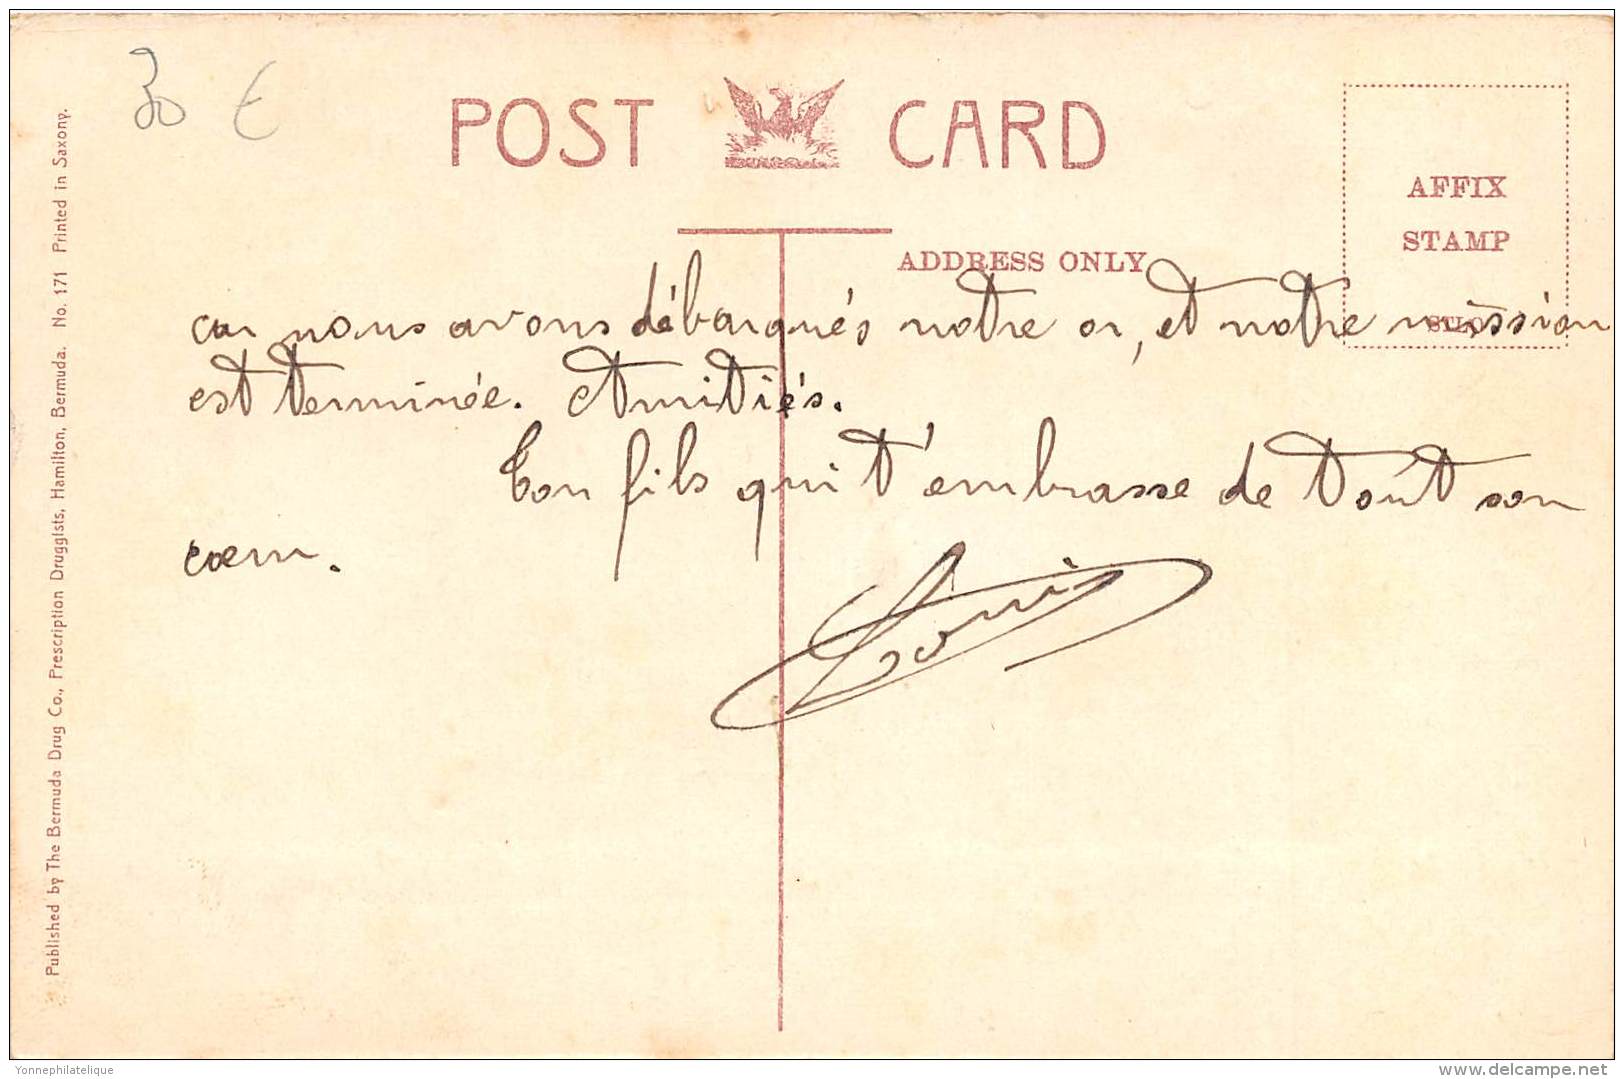 30 €
POST CARD
AFFIX
STAMP
ADDRESS ONLY
car nous avons débarqués notre or, et notre mission
est terminée. Amitiés.
Ton fils qui t'embrasse de tout son
cœur.
Louis
Published by The Bermuda Drug Co., Prescription Druggists, Hamilton, Bermuda. No. 171 Printed in Saxony.
Yonnephilatelique
delcampe.net